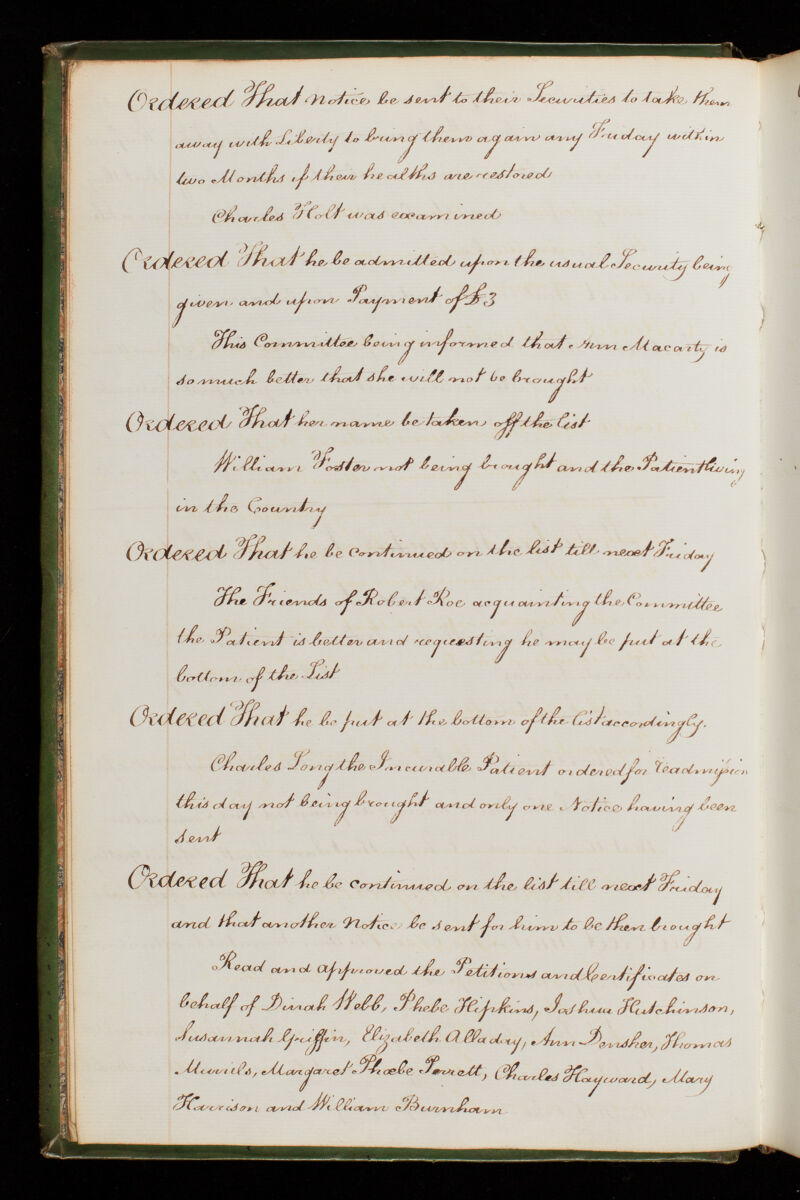 Ordered That Notice be sent to their Securities to take them
away with Liberty to bring them again any Friday within
two Months if their healths are restored
Charles Holt was examined
Ordered That he be admitted upon the usual Security being
given and upon Payment of £3
This Committee being informed that Ann Macarty is
so much better that she will not be brought
Ordered That her name be taken off the list
William Foster not being brought and the Patient living
in the Country
Ordered That he be continued on the list till next Friday
The Friends of Robert Roe acquainting the Committee
the Patient is better and requesting he may be put at the
bottom of the List
Ordered That he be put at the bottom of the list accordingly.
Charles Long the Incurable Patient ordered for readmission
this day not being brought and only one Notice having been
sent
Ordered That he be continued on the list till next Friday
and that another Notice be sent for him to be then brought
Read and approved the Petitions and Certificates on
behalf of Dinah Webb, Phebe Hipkins, Joshua Hutchinson,
Susannah Griffin, Elizabeth Alladay, Ann Densher, Thomas
Murrils, Margaret Phœbe Perrett, Charles Hayward, Mary
Harrison and William Burnham